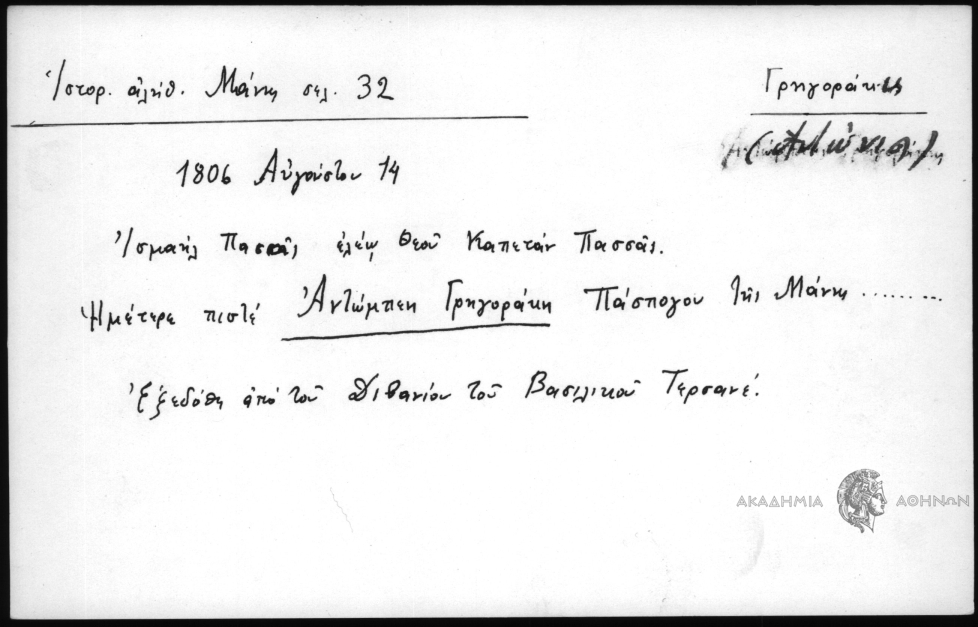 Ἱστορ. ἀλήθ. Μάνης σελ. 32
Γρηγοράκης
1806 Αὐγούστου 14
Ἰσμαήλ Πασσᾶς ἐλέῳ Θεοῦ Καπετάν Πασσᾶς.
Ἡμέτερε πιστέ Ἀντώμπεη Γρηγοράκη Πάσπογου τῆς Μάνης .........
Ἐξεδόθη ἀπό τοῦ Διβανίου τοῦ Βασιλικοῦ Τερσανέ.
ΑΚΑΔΗΜΙΑ ΑΘΗΝΩΝ